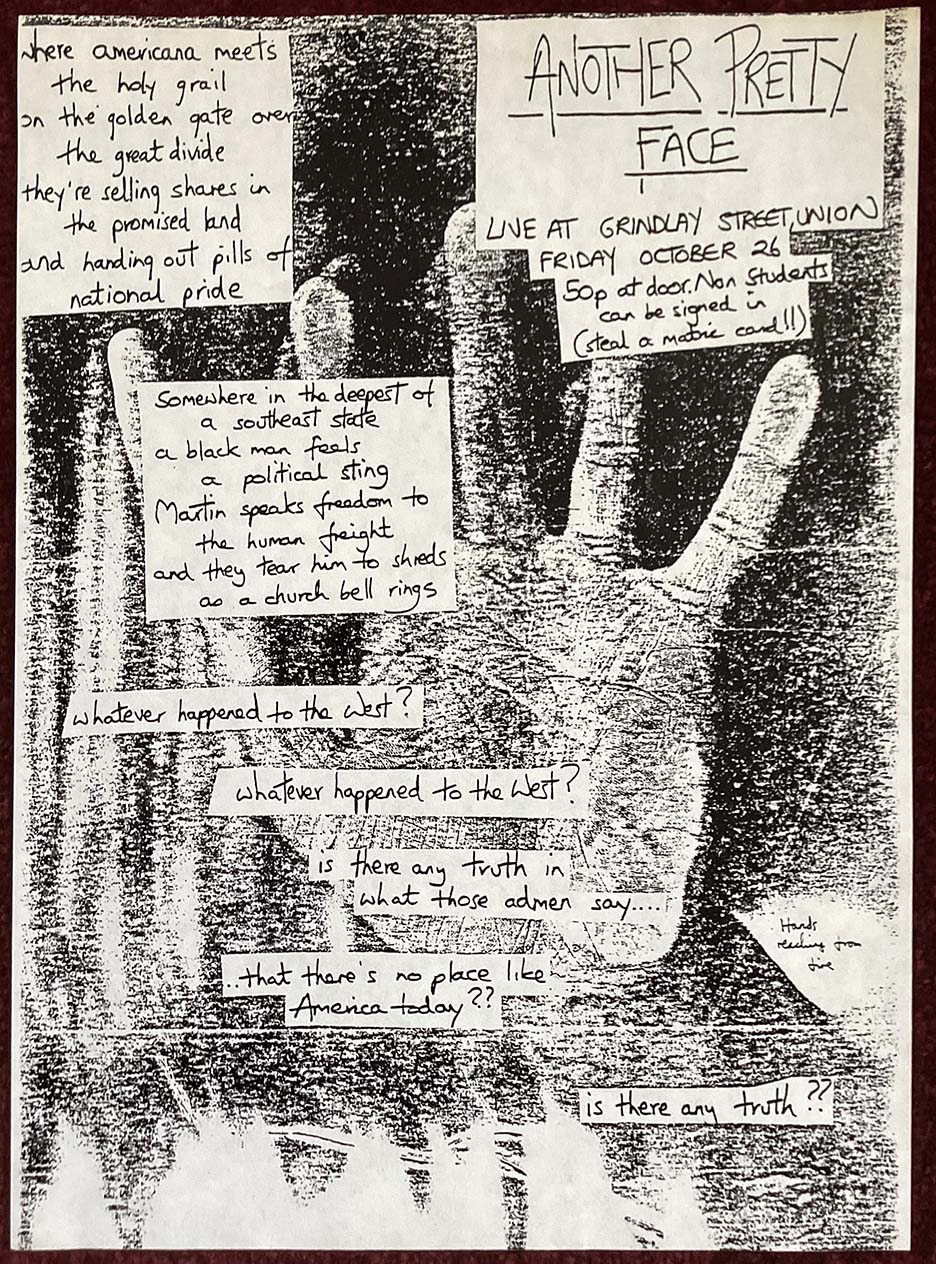 where americana meets
the holy grail
on the golden gate over
the great divide
they're selling shares in
the promised land
and handing out pills of
national pride
ANOTHER PRETTY
FACE
LIVE AT GRINDLAY STREET, UNION
FRIDAY OCTOBER 26
50p at door. Non Students
can be signed in
(steal a matric card!!)
Somewhere in the deepest of
a southeast state
a black man feels
a political sting
Martin speaks freedom to
the human freight
and they tear him to shreds
as a church bell rings
whatever happened to the West?
whatever happened to the West?
is there any truth in
what those admen say....
..that there's no place like
America today??
Hands
reaching from
fire
is there any truth??